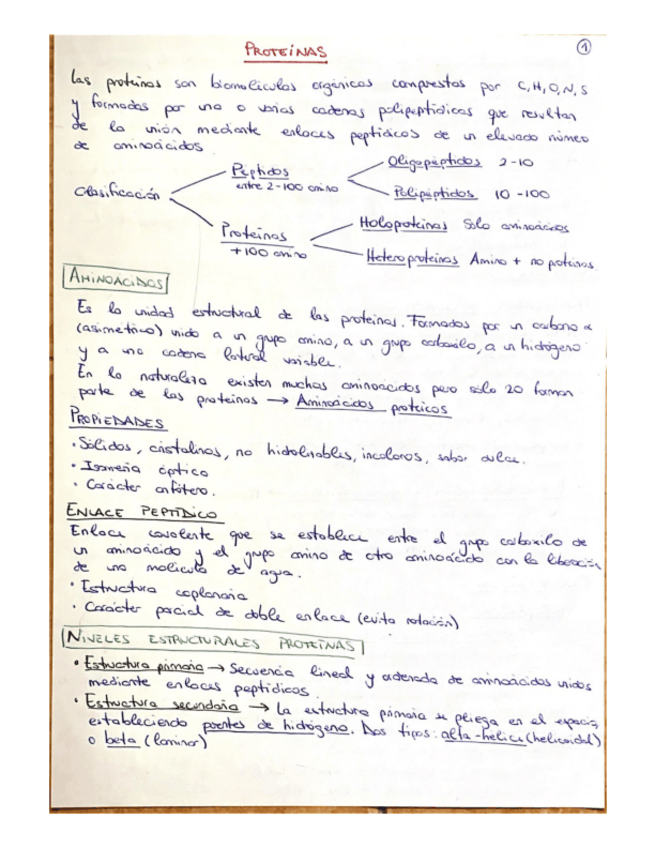 PROTEÍNAS
1
Las proteínas son biomoléculas orgánicas compuestas por C, H, O, N, S
y formadas por una o varias cadenas polipeptídicas que resultan
de la unión mediante enlaces peptídicos de un elevado número
de aminoácidos
Clasificación
Péptidos
entre 2-100 amino
Oligopéptidos 2-10
Polipéptidos 10-100
Proteínas
+100 amino
Holoproteínas Solo aminoácidos
Heteroproteínas Amino + no proteínas
AMINOÁCIDOS
Es la unidad estructural de las proteínas. Formados por un carbono α
(asimétrico) unido a un grupo amino, a un grupo carboxilo, a un hidrógeno
y a una cadena lateral variable.
En la naturaleza existen muchos aminoácidos pero sólo 20 forman
parte de las proteínas → Aminoácidos proteicos
PROPIEDADES
• Sólidos, cristalinos, no hidrolizables, incoloros, sabor dulce.
• Isomería óptica
• Carácter anfótero.
ENLACE PEPTÍDICO
Enlace covalente que se establece entre el grupo carboxilo de
un aminoácido y el grupo amino de otro aminoácido con la liberación
de una molécula de agua.
• Estructura coplanaria
• Carácter parcial de doble enlace (evita rotación)
NIVELES ESTRUCTURALES PROTEÍNAS
• Estructura primaria → Secuencia lineal y ordenada de aminoácidos unidos
mediante enlaces peptídicos
• Estructura secundaria → La estructura primaria se pliega en el espacio
estableciendo puentes de hidrógeno. Dos tipos: alfa-hélice (helicoidal)
o beta (laminar)